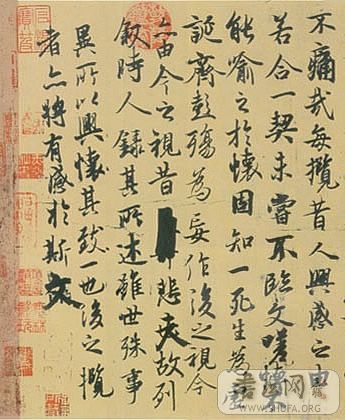 不痛哉每攬昔人興感之由
若合一契未嘗不臨文嗟
能喻之於懷固知一死生為
誕齊彭殤為妄作後之視今
亦由今之視昔悲夫故列
叙時人錄其所述雖世殊事
異所以興懷其致一也後之攬
者亦將有感於斯文
WWW.SHUFA.ORG